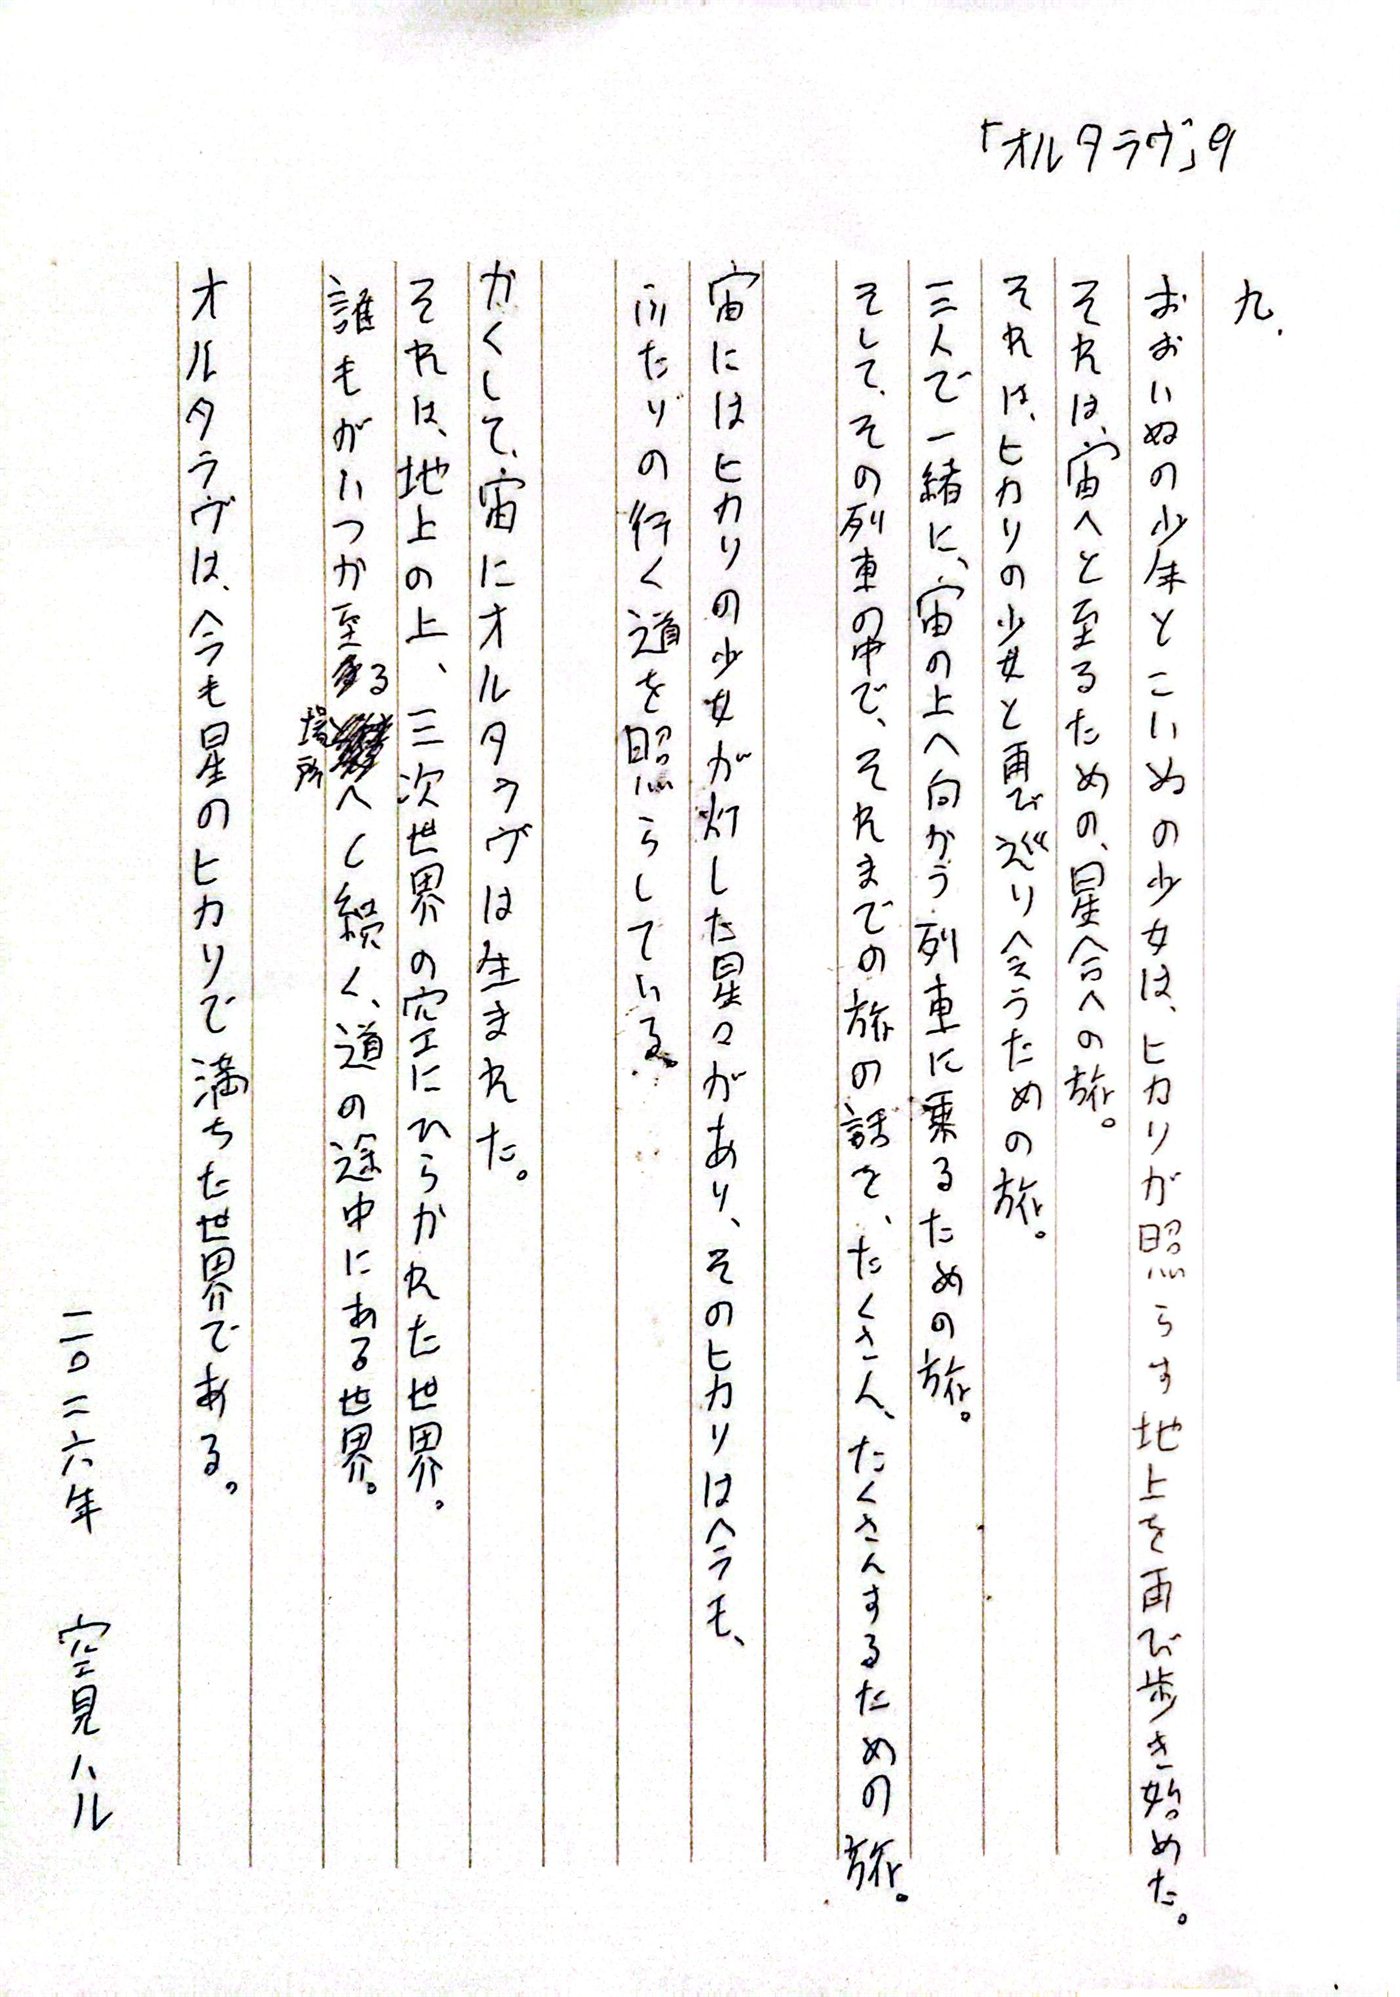 「オルタラヴ」9
九.
おおいぬの少年とこいぬの少女は、ヒカリが照らす地上を再び歩き始めた。
それは、宙へと至るための、星合への旅。
それは、ヒカリの少女と再び巡り会うための旅。
三人で一緒に、宙の上へ向かう列車に乗るための旅。
そして、その列車の中で、それまでの旅の話を、たくさん、たくさんするための旅。
宙にはヒカリの少女が灯した星々があり、そのヒカリは今も、
ふたりの行く道を照らしている。
かくして、宙にオルタラヴは生まれた。
それは、地上の上、三次世界の空にひらかれた世界。
誰もがいつか至る場所へと続く、道の途中にある世界。
オルタラヴは、今も星のヒカリで満ちた世界である。
二〇二六年 空見ハル